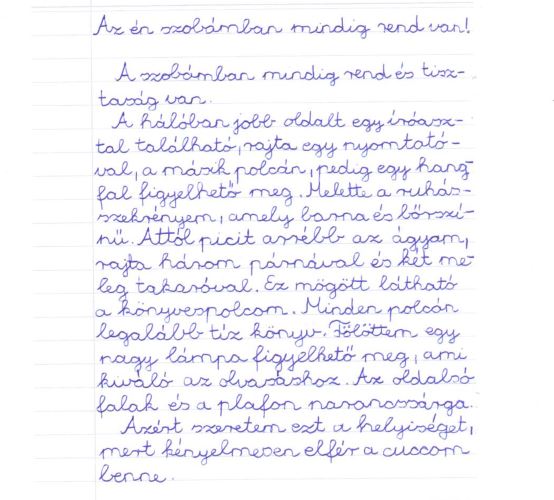 Az én szobámban mindig rend van!
A szobámban mindig rend és tisz-
taság van.
A hálóban jobb oldalt egy íróasz-
tal található, rajta egy nyomtató-
val, a másik polcán, pedig egy hang-
fal figyelhető meg. Melette a ruhás-
szekrényem, amely barna és bőrszí-
nű. Attól picit arrébb az ágyam,
rajta három párnával és két me-
leg takaróval. Ez mögött látható
a könyvespolcom. Minden polcán
legalább tíz könyv. Fölöttem egy
nagy lámpa figyelhető meg, ami
kiváló az olvasáshoz. Az oldalsó
falak és a plafon narancssárga.
Azért szeretem ezt a helyiséget,
mert kényelmesen elfér a cuccom
benne.